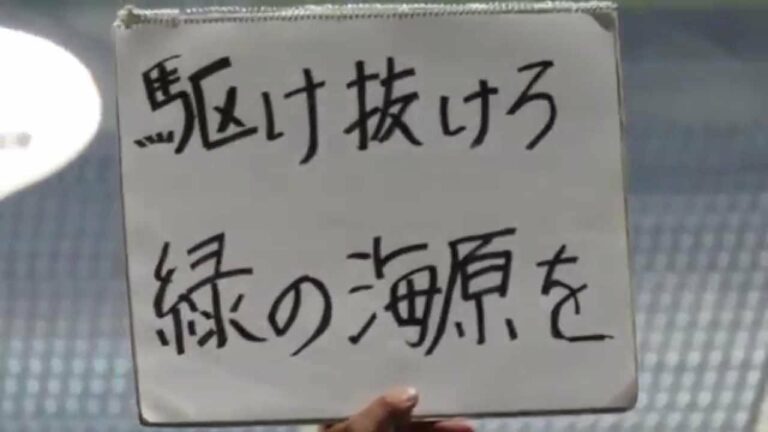 駆け抜けろ
緑の海原を